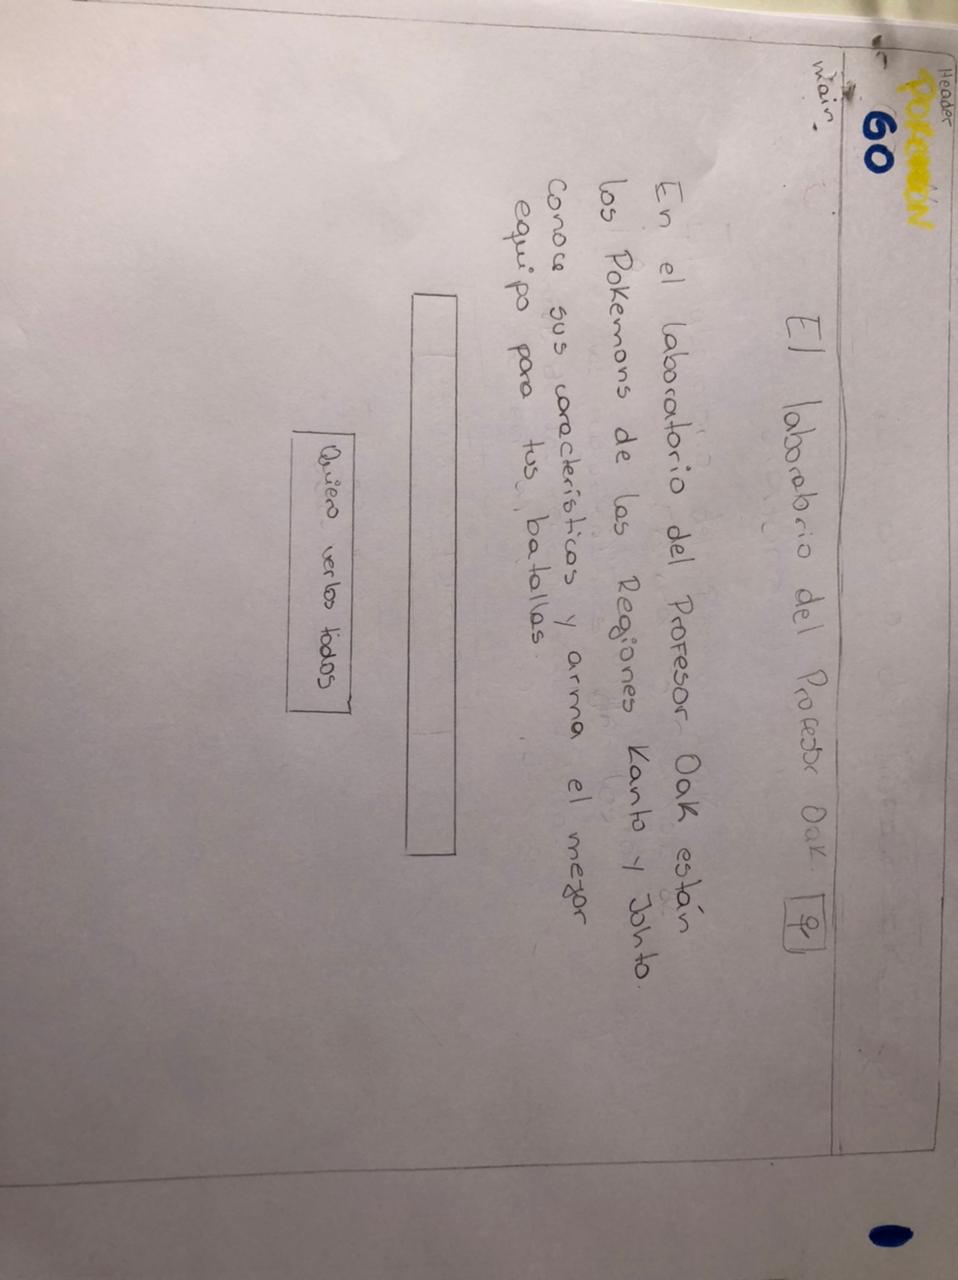 Header
POKEMÓN
GO
main.
El laborabrio del Profesor Oak.
En el laboratorio del Profesor Oak están
los Pokemons de las Regiones Kanto y Johto.
conoce sus característicos y arma el mejor
equipo para tus batallas.
Quiero verlos todos